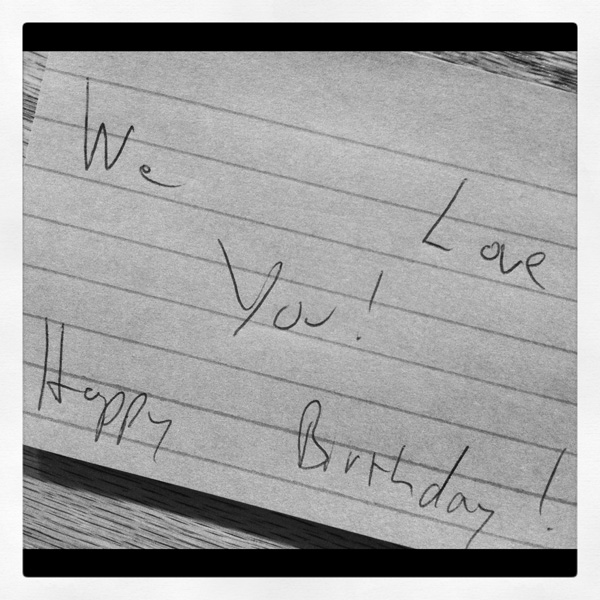 We Love
You!
Happy Birthday!